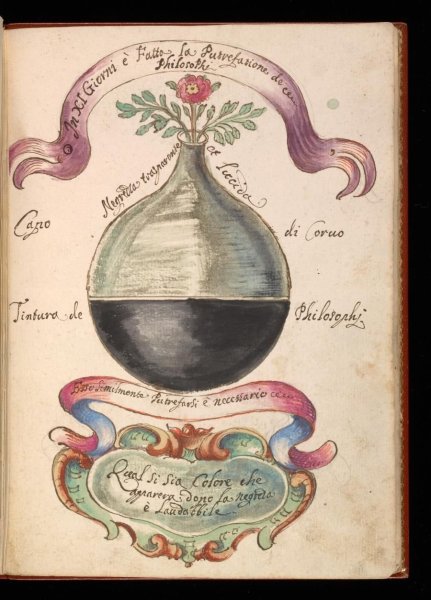 In XL Giorni è Fatto la Putrefazione de
Philosophi
Negrezza trasparente et lucida
Capo di Corvo
Tintura de Philosophi
Esso similmente Putrefarsi è necessario
Qual si sia Colore che
apparera dopo la negreza
è Laudabile